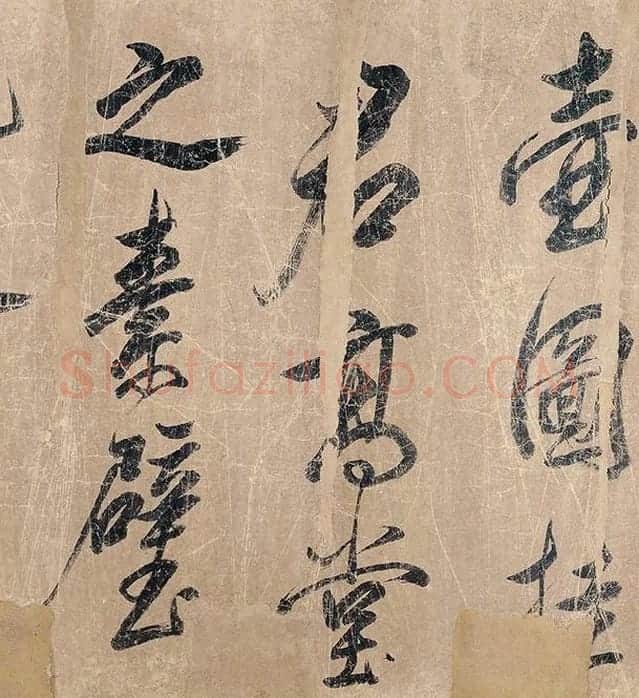 壺圖挂
君高堂
之素壁
Shufaziliao.COM